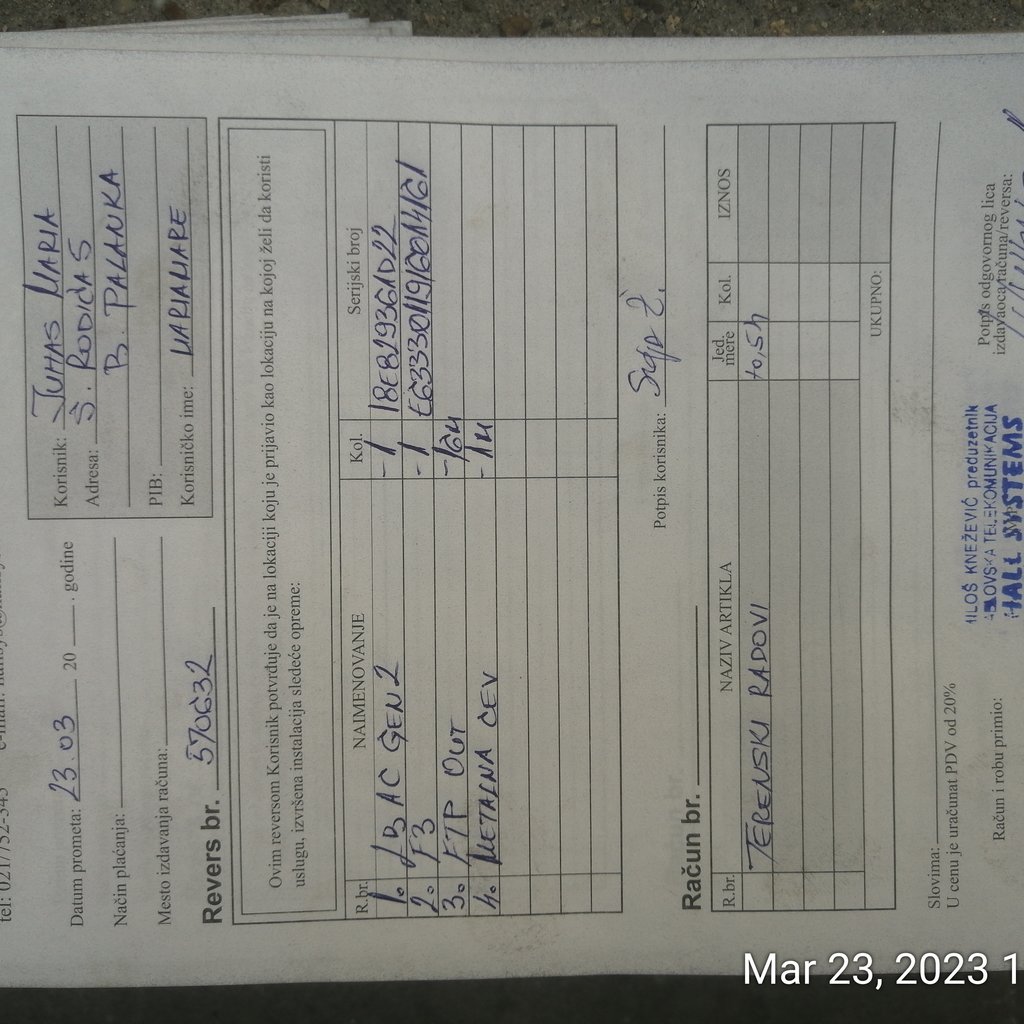 Datum prometa: 23.03 20 . godine
Način plaćanja:
Mesto izdavanja računa:
Korisnik: JUHAS MARIA
Adresa: Š. RODIĆA 5
B. PALANKA
PIB:
Korisničko ime:
Revers br. 570632
Ovim reversom Korisnik potvrđuje da je na lokaciji koju je prijavio kao lokaciju na kojoj želi da koristi
uslugu, izvršena instalacija sledeće opreme:
R.br. NAIMENOVANJE Kol. Serijski broj
1. AC GEN2 -1
2. F3 -1
3. FTP OUT
4. METALNA CEV -1M
Potpis korisnika:
Račun br.
R.br. NAZIV ARTIKLA Jed. mere Kol. IZNOS
TERENSKI RADOVI to,5h
UKUPNO:
Slovima:
U cenu je uračunat PDV od 20%
Račun i robu primio:
MILOŠ KNEŽEVIĆ preduzetnik
TELEKOMUNIKACIJA
HALL SYSTEMS
Potpis odgovornog lica
izdavaoca računa/reversa:
Mar 23, 2023 1